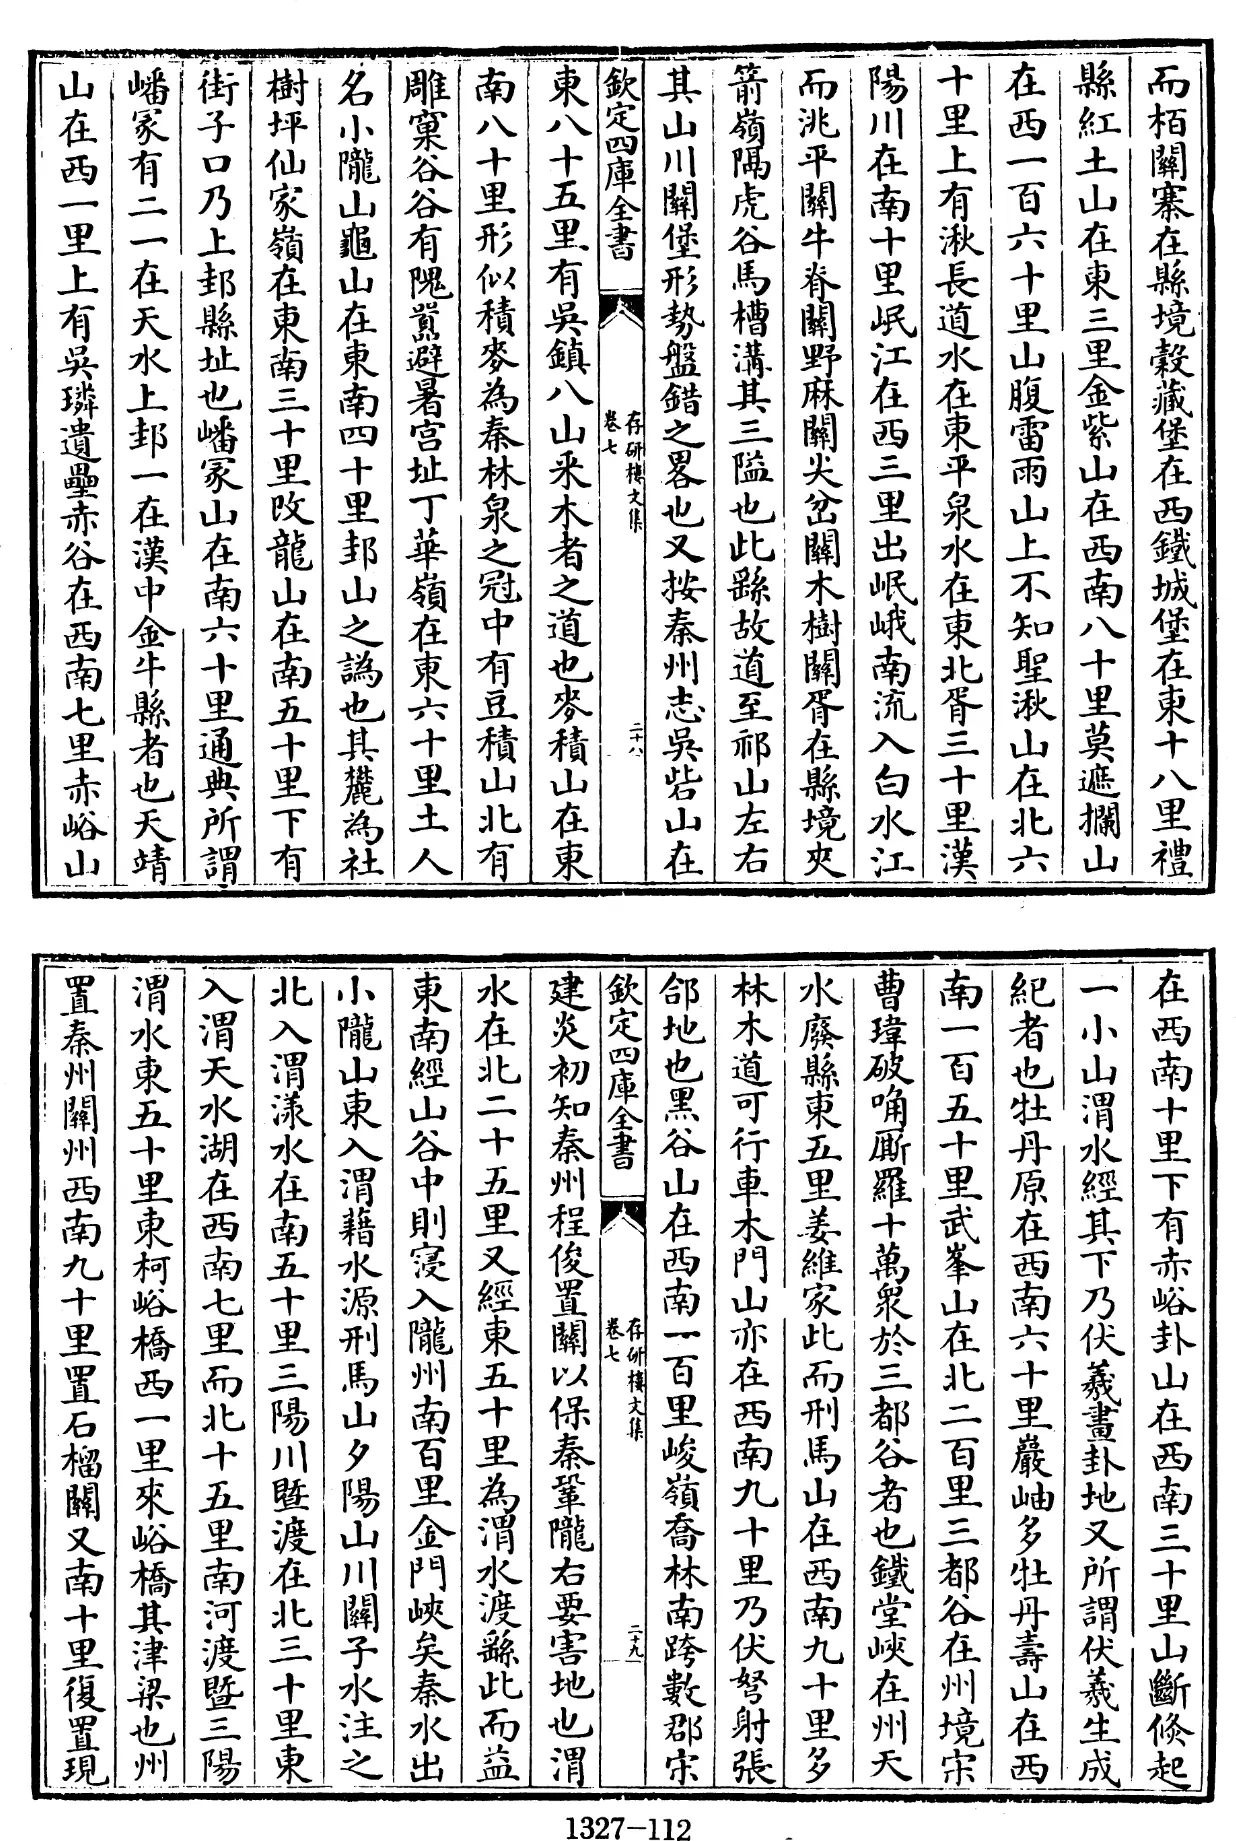 而栢關寨在縣境穀藏堡在西鐵城堡在東十八里禮
縣紅土山在東三里金紫山在西南八十里莫遮攔山
在西一百六十里山腹雷雨山上不知聖湫山在北六
十里上有湫長道水在東平泉水在東北胥三十里漢
陽川在南十里岷江在西三里出岷峨南流入白水江
而洮平關牛脊關野麻關尖岔關木樹關胥在縣境夾
箭嶺隔虎谷馬槽溝其三隘也此繇故道至祁山左右
其山川關堡形勢盤錯之畧也又按秦州志吳砦山在
欽定四庫全書
存研樓文集
卷七
二十八
東八十五里有吳鎮八山采木者之道也麥積山在東
南八十里形似積麥為秦林泉之冠中有豆積山北有
雕窠谷谷有隗囂避暑宫址丁華嶺在東六十里土人
名小隴山龜山在東南四十里邽山之譌也其麓為社
樹坪仙家嶺在東南三十里改龍山在南五十里下有
街子口乃上邽縣址也嶓冢山在南六十里通典所謂
嶓冢有二一在天水上邽一在漢中金牛縣者也天靖
山在西一里上有吳璘遺壘赤谷在西南七里赤峪山
在西南十里下有赤峪卦山在西南三十里山斷倐起
一小山渭水經其下乃伏羲畫卦地又所謂伏羲生成
紀者也牡丹原在西南六十里巖岫多牡丹壽山在西
南一百五十里武峯山在北二百里三都谷在州境宋
曹瑋破唃厮羅十萬衆於三都谷者也鐵堂峽在州天
水廢縣東五里姜維家此而刑馬山在西南九十里多
林木道可行車木門山亦在西南九十里乃伏弩射張
郃地也黑谷山在西南一百里峻嶺喬林南跨數郡宋
欽定四庫全書
存研樓文集
卷七
二十九
建炎初知秦州程俊置關以保秦鞏隴右要害地也渭
水在北二十五里又經東五十里為渭水渡繇此而益
東南經山谷中則寖入隴州南百里金門峽矣秦水出
小隴山東入渭藉水源刑馬山夕陽山川關子水注之
北入渭漾水在南五十里三陽川暨渡在北三十里東
入渭天水湖在西南七里而北十五里南河渡暨三陽
渭水東五十里東柯峪橋西一里來峪橋其津梁也州
置秦州關州西南九十里置石榴關又南十里復置現
1327-112